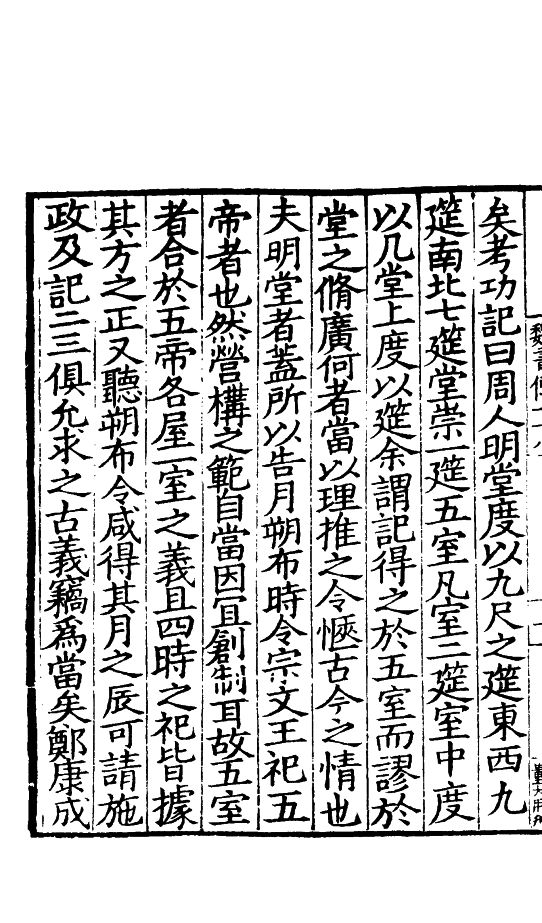 矣考功記曰周人明堂度以九尺之筵東西九
筵南北七筵堂崇一筵五室凡室二筵室中度
以几堂上度以筵余謂記得之於五室而謬於
堂之脩廣何者當以理推之令愜古今之情也
夫明堂者蓋所以告月朔布時令宗文王祀五
帝者也然營構之範自當因宜創制耳故五室
者合於五帝各居一室之義且四時之祀皆據
其方之正又聽朔布令咸得其月之辰可請施
政及記二三俱允求之古義竊爲當矣鄭康成